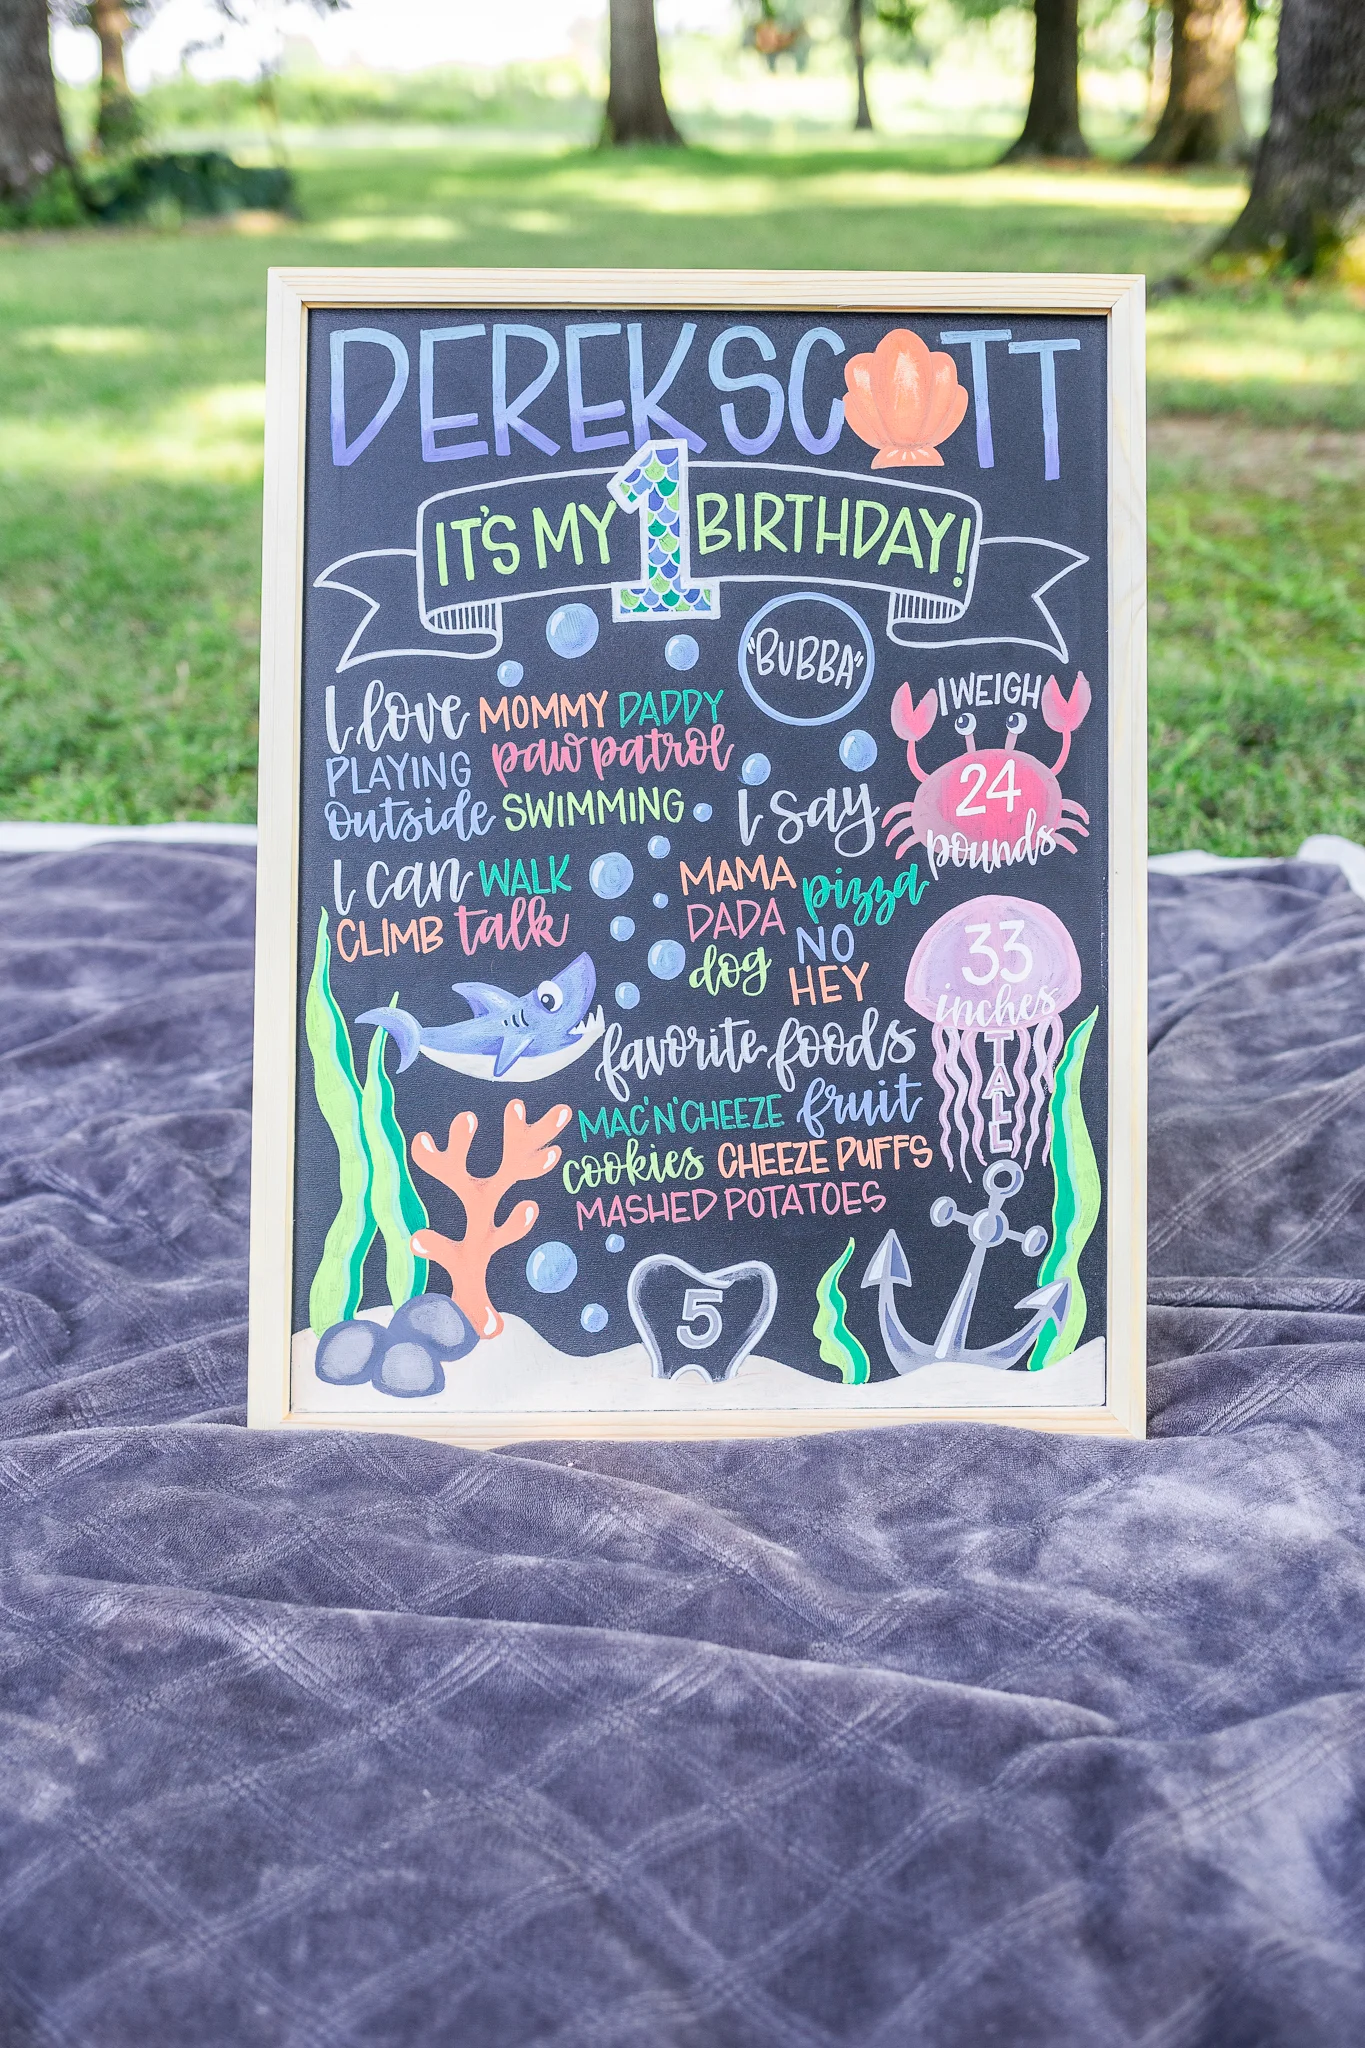 DEREK SCOTT
IT'S MY 1 BIRTHDAY!
"BUBBA"
I love MOMMY DADDY
PLAYING paw patrol
outside SWIMMING
I can WALK
CLIMB talk
I say
MAMA pizza
DADA NO
dog HEY
I WEIGH
24
pounds
33
inches
TALL
favorite foods
MAC'N'CHEEZE fruit
cookies CHEEZE PUFFS
MASHED POTATOES
5